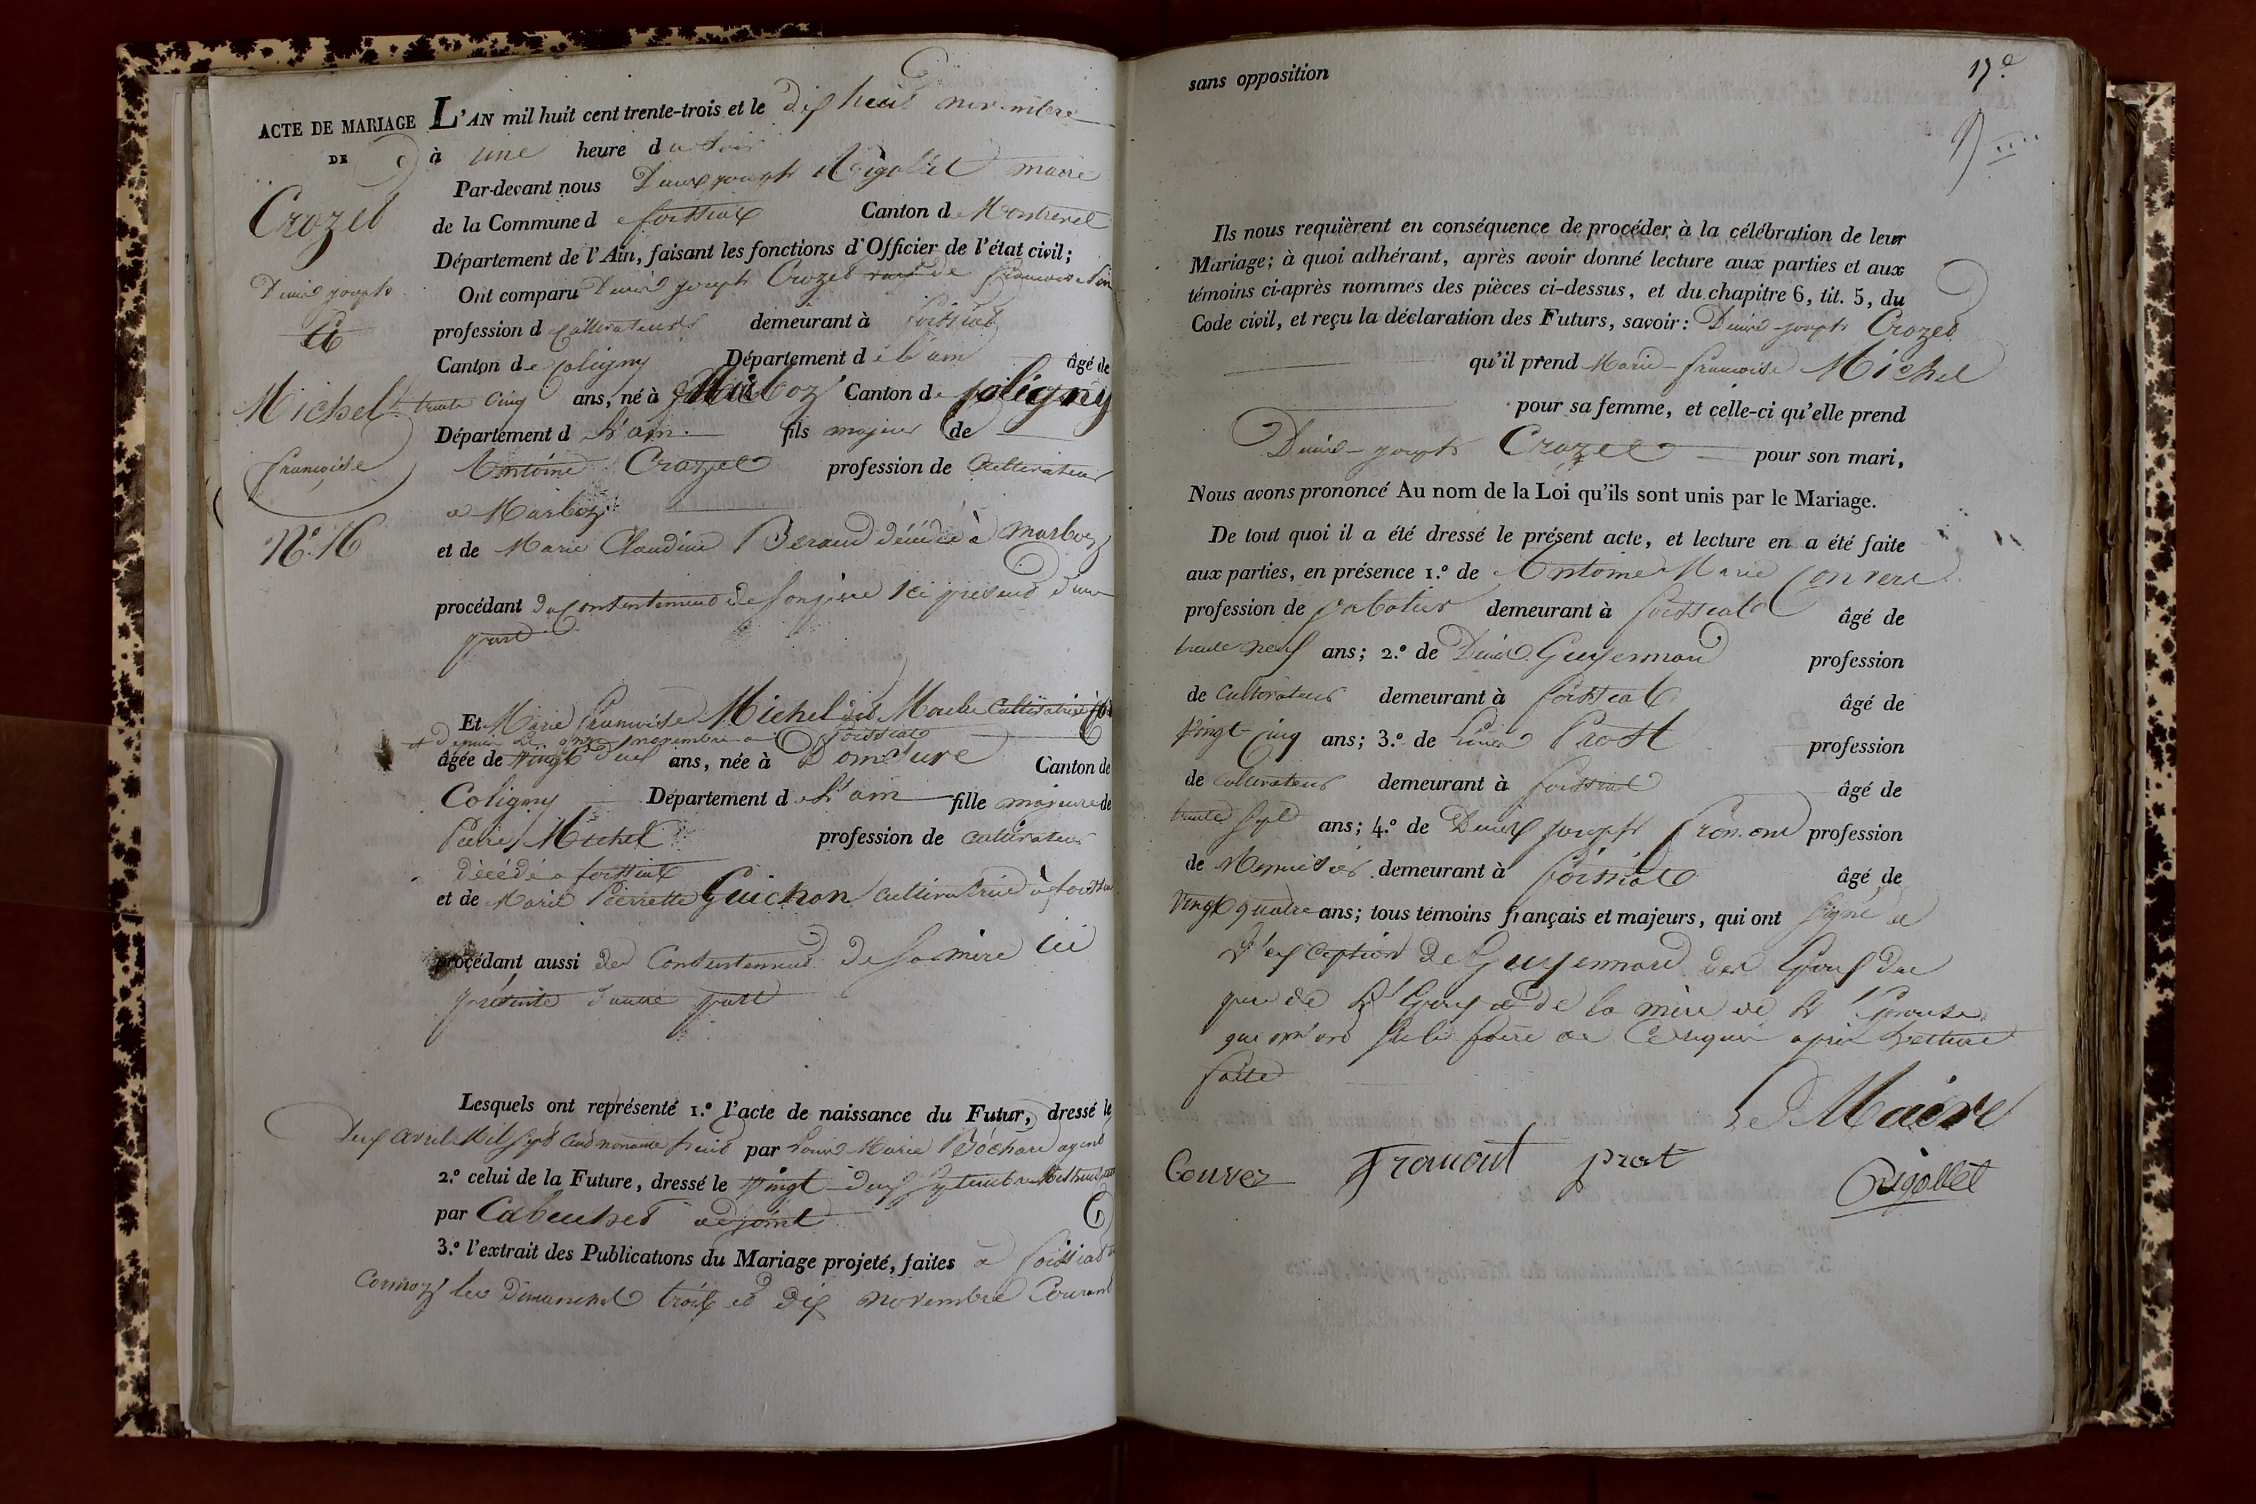 ACTE DE MARIAGE
DE
Crozet
Denis joseph
et
Michel
françoise
N.º 16
L'AN mil huit cent trente-trois et le dix huit novembre
à une heure du soir
Par-devant nous Denis joseph Rigollet maire
de la Commune de foissiat Canton de Montrevel
Département de l'Ain, faisant les fonctions d'Officier de l'état civil;
Ont comparu Denis joseph Crozet
profession de Cultivateur demeurant à foissiat
Canton de Coligny Département de l'ain âgé de
trente Cinq ans, né à Marboz Canton de Coligny
Département de l'ain fils majeur de
Antoine Crozet profession de Cultivateur
a Marboz
et de Marie Claudine Beraud décédée à marboz
procédant du Consentement de son père ici présent d'une
part
Et Marie françoise Michel dit Moule Cultivatrice
et depuis le onze novembre a foissiat
âgée de vingt deux ans, née à Domsure Canton de
Coligny Département de l'ain fille majeure de
Pierre Michel profession de cultivateur
décédé a foissiat
et de Marie Pierrette Guichon Cultivatrice à foissiat
procédant aussi du Consentement de sa mère ici
présente d'autre part
Lesquels ont représenté 1.º l'acte de naissance du Futur, dressé le
Dix avril Mil sept cent nonante huit par Louis Marie Bochard agent
2.º celui de la Future, dressé le vingt deux septembre Mil huit cent
par Cabuchet adjoint
3.º l'extrait des Publications du Mariage projeté, faites a foissiat
Cormoz les dimanches trois et dix novembre Courant
sans opposition
17.e
Ils nous requièrent en conséquence de procéder à la célébration de leur
Mariage; à quoi adhérant, après avoir donné lecture aux parties et aux
témoins ci-après nommés des pièces ci-dessus, et du chapitre 6, tit. 5, du
Code civil, et reçu la déclaration des Futurs, savoir: Denis joseph Crozet
qu'il prend Marie françoise Michel
pour sa femme, et celle-ci qu'elle prend
Denis joseph Crozet pour son mari,
Nous avons prononcé Au nom de la Loi qu'ils sont unis par le Mariage.
De tout quoi il a été dressé le présent acte, et lecture en a été faite
aux parties, en présence 1.º de Antoine Marie Convert
profession de sabotier demeurant à foissiat âgé de
trente neuf ans; 2.º de Denis Guyennard profession
de Cultivateur demeurant à foissiat âgé de
vingt Cinq ans; 3.º de Prost profession
de cultivateur demeurant à foissiat âgé de
trente sept ans; 4.º de Denis joseph fromont profession
de Menuisier demeurant à foissiat âgé de
vingt quatre ans; tous témoins français et majeurs, qui ont signé a
l'exception de Guyennard des Epoux du
père de l'Epoux et de la mère de l'Epouse
qui n'ont su le faire de Ce requis après lecture
faite
Le Maire
Convert Fromont prot Rigollet